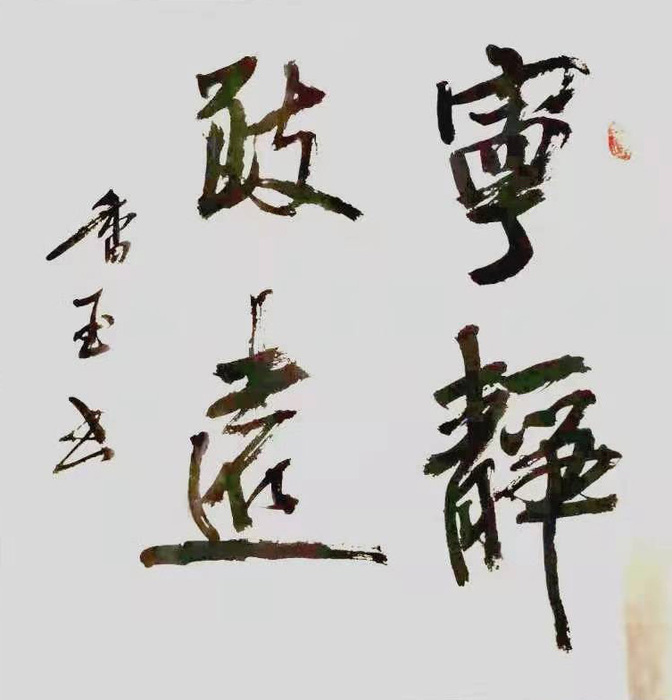 寧靜
致遠
香玉书